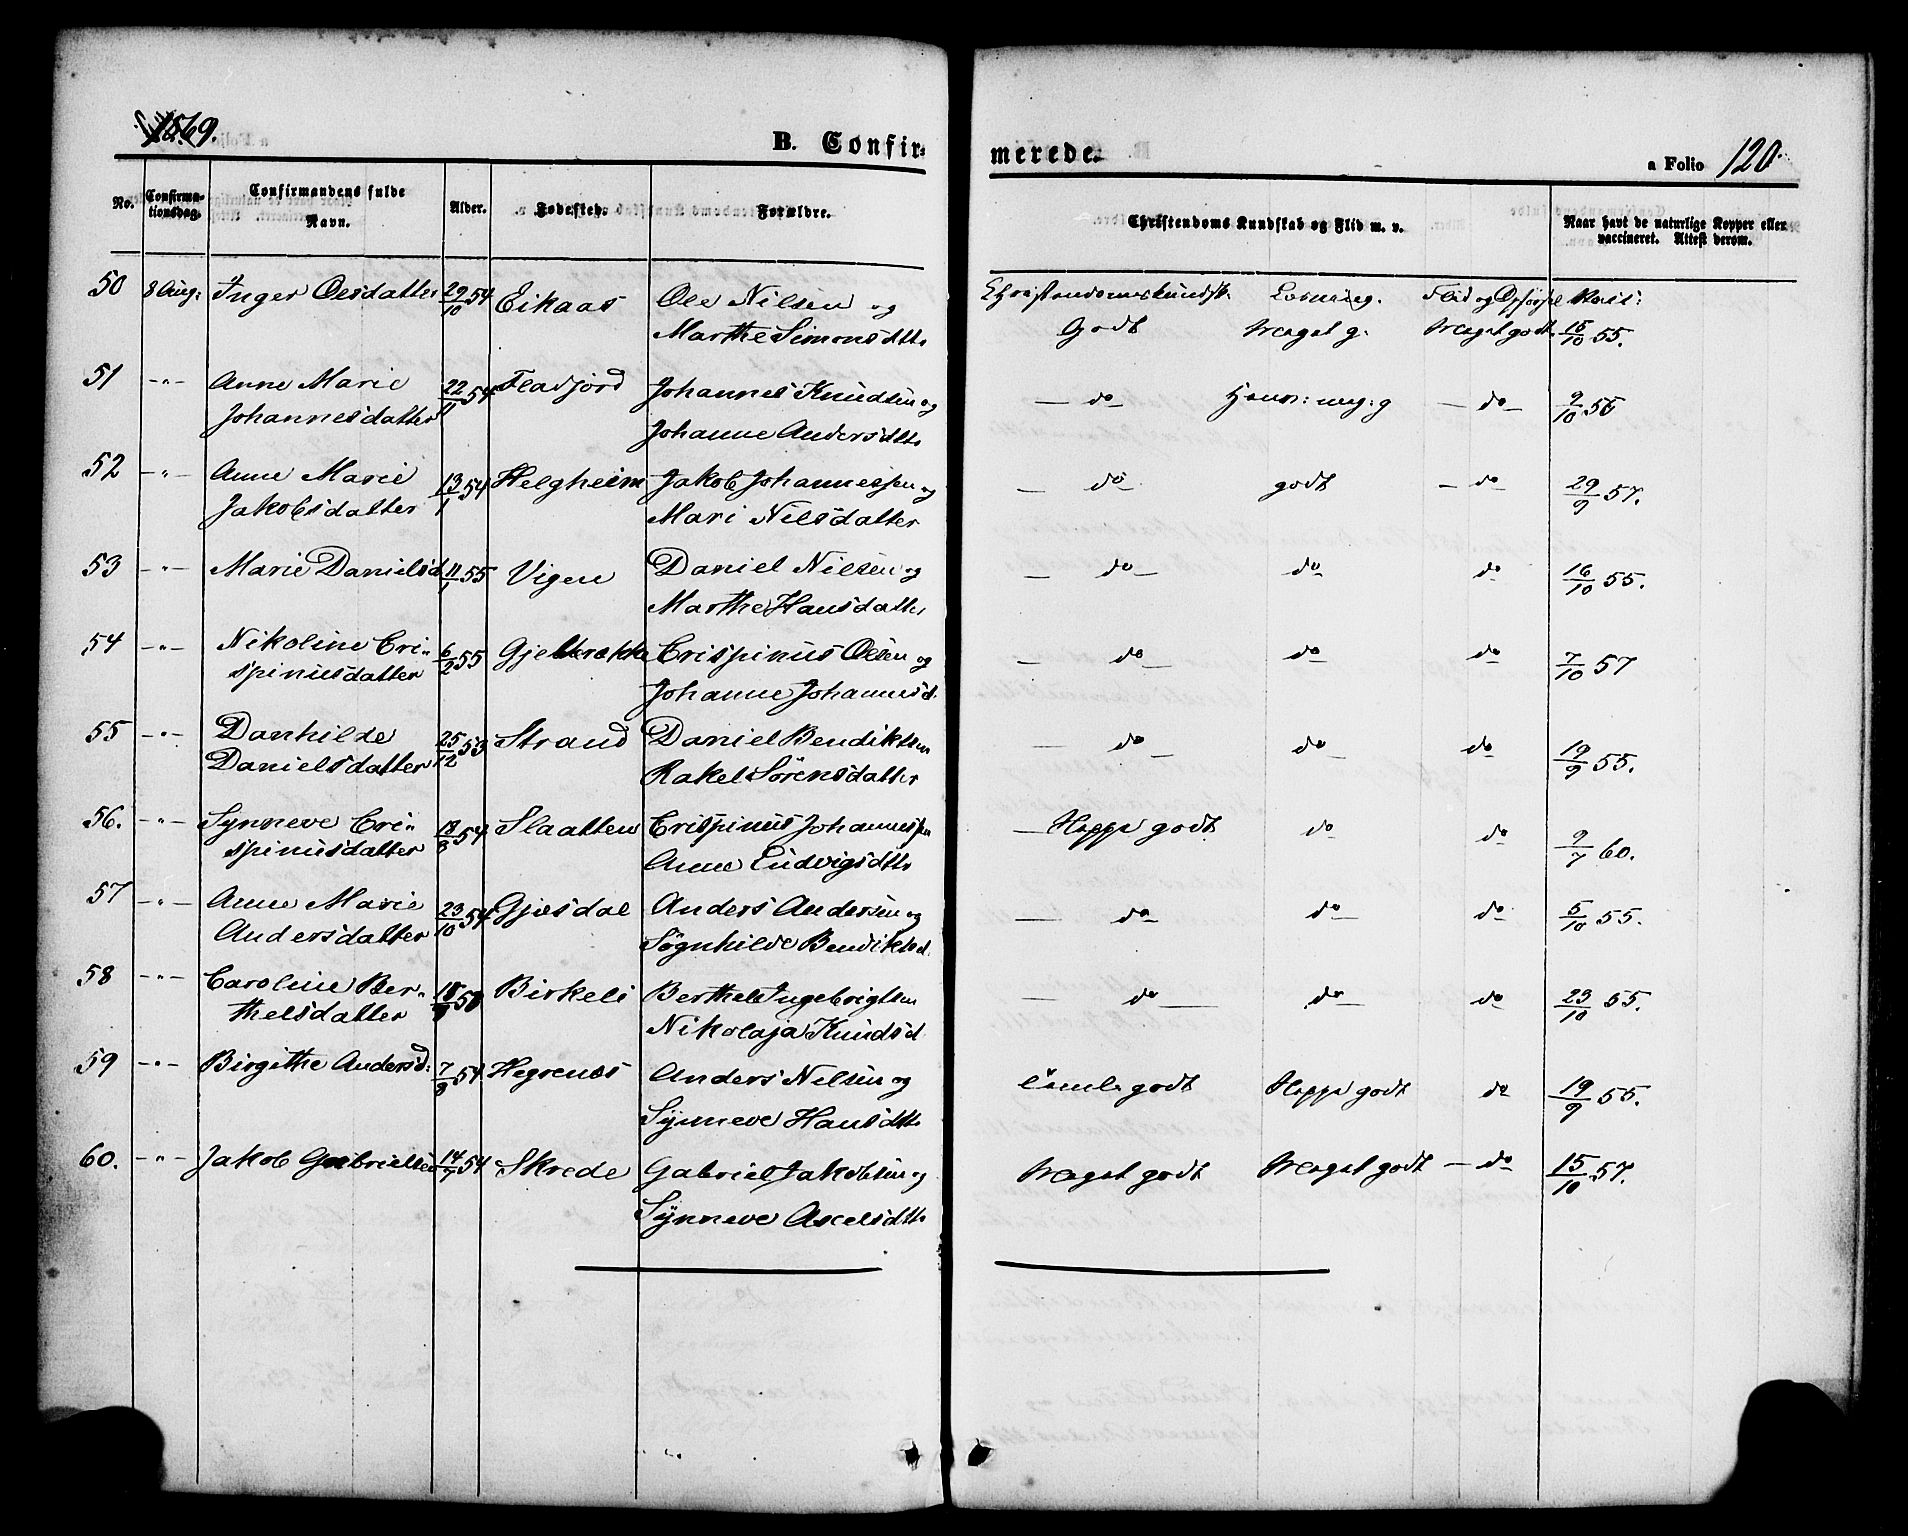 1869.
B. Confirmerede.
a Folio 120.
No. Confirmationsdag. Confirmandens fulde Navn. Alder. Fødested. Forældre. Christendoms Kundskab og Flid m. v. Naar havt de naturlige Kopper eller vaccineret. Attest derom.
50 8 Aug: Inger Olsdatter 29/10 54 Eikaas Ole Nilsen og Christendomskundsk. Læsning. Flid og Opførsel Vacc:
Marthe Simonsdttr Godt Meget g. Meget godt 15/10 55.
51 -"- Anne Marie 22/11 54 Fladjord Johannes Knudsen og — do — meg: g — do — 9/10 56
Johannesdatter Johanne Andersdttr
52 -"- Anne Marie 13/1 54 Helgheim Jakob Johannessen og — do — godt — do 29/9 57.
Jakobsdatter Mari Nilsdatter
53 -"- Marie Danielsd 11/1 55 Vigen Daniel Nilsen og — do — do do 16/10 55.
Marthe Hansdatter
54 -"- Nikoline Cri- 6/2 55 Crispinus Olsen og — do do do 7/10 57
spinusdatter Johanne Johannesd.
55 -"- Danhilde 25/12 53 Strand Daniel Bendiktsen — do do do 19/9 55.
Danielsdatter Rakel Sörensdatter
56. -"- Synneve Cri- 54 Slaatten Crispinus Johannessen — Hoppe godt do do 9/7 60.
spinusdatter Anne Ludvigsdttr
57 -"- Anne Marie 23/10 54 Gjesdal Anders Andersen og — do do do 5/10 55.
Andersdatter Søgnhilde Bendiktsd.
58 -"- Caroline Ber- Birkeli Berthel Ingebrigtsen — do do do 23/10 55.
thelsdatter Nikolaja Knudsd
59 -"- Birgithe Andersd: 54 Hegrenæs Anders Nilsen og Temle godt Hoppe godt do 19/9 55.
Synneve Hansdttr
60. -"- Jakob Gabrielsen 14/7 54 Skrede Gabriel Jakobsen og Meget godt Meget godt — do 15/10 57.
Synneve Axelsdttr